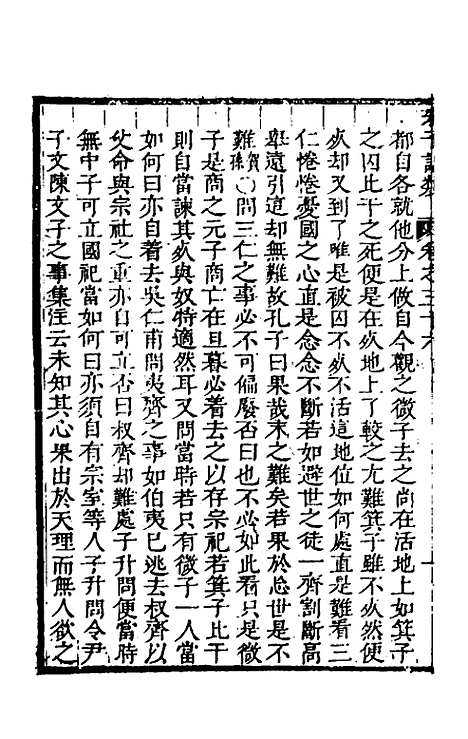 都自各就他分上做自今觀之微子去之尚在活地上如箕子
之囚比干之死便是在死地上了較之尤難箕子雖不死然便
死却又到了唯是被囚不死不活這地位如何處直是難看三
仁惓惓憂國之心直是念念不斷若如避世之徒一齊割斷高
舉遠引這却無難故孔子曰果哉末之難矣若果於忘世是不
難賜○問三仁之事必不可偏廢否曰也不必如此看只是微
子是商之元子商亡在旦暮必着去之以存宗祀若箕子比干
則自當諫其死與奴特適然耳又問當時若只有微子一人當
如何曰亦自着去吳仁甫問夷齊之事如伯夷已逃去叔齊以
父命與宗社之重亦自可立否曰叔齊却難處子升問使當時
無中子可立國祀當如何曰亦須自有宗室等人子升問令尹
子文陳文子之事集注云未知其心果出於天理而無人欲之